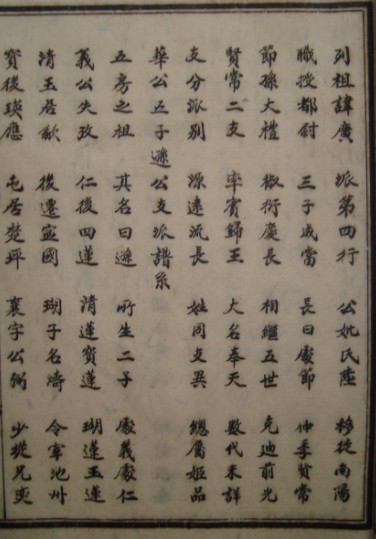 列祖諱廣 派第四行 公妣氏陸 移從南陽
職授都尉 三子成當 長曰處節 仲季賢常
節孫大禮 椒衍慶長 相繼五世 克迪前光
賢常二支 率賓歸王 大名奉天 數代未詳
支分派別 源遠流長 姓同支異 總屬姬品
華公五子遜公支派譜系
五房之祖 其名曰遜 所生二子 處義處仁
義公失攷 仁後四蓮 清蓮寶蓮 瑚蓮玉蓮
清玉居歙 後遷寍國 瑚子名濤 令宰池州
寶後瑛應 屯居楚坪 襄字公弼 少從兄奭